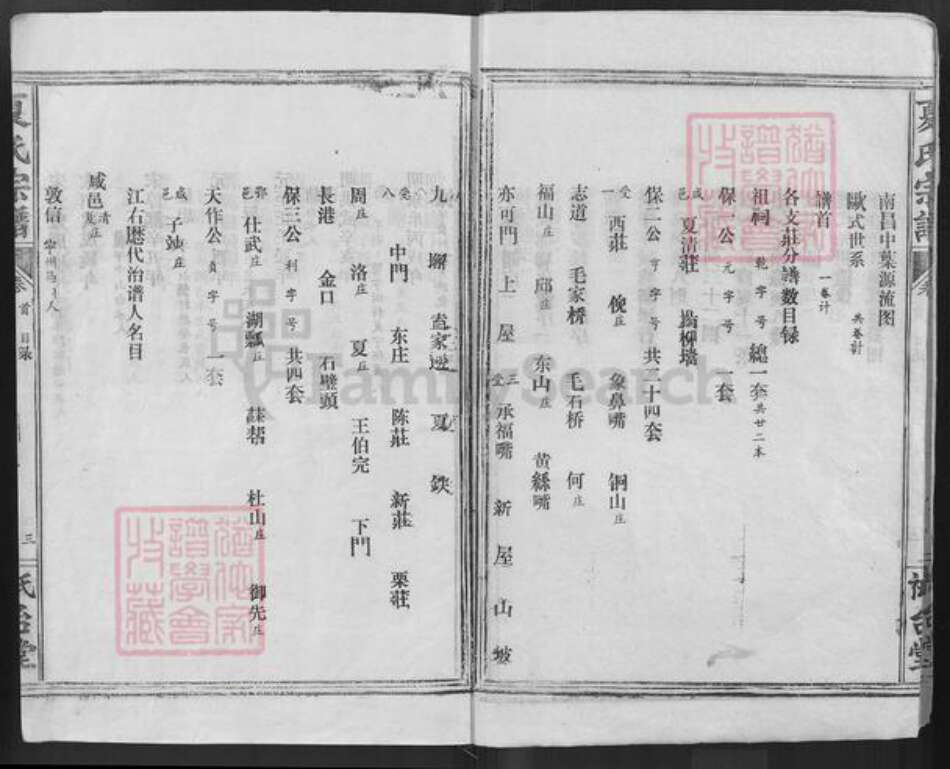 夏氏宗譜
南昌中葉源流图
歐式世系 共卷計
譜首 一卷计
各支莊分譜数目録
祖祠 乾字号 總一套共廿二本
保一公 元字号 一套
咸邑 夏清莊 楊柳墻
保二公 亨字号 共二十四套
受一 西莊 俛庄 象鼻嘴 铜山庄
志道 毛家桥 毛石桥 何庄
福山庄 邱庄 东山庄 黄絲嘴
亦可門 上屋 三受 承福嘴 新屋山坡
九 夏 鉄
受八 中門 东庄 陈莊 新莊 栗莊
周庄 洛庄 夏庄 王伯完 下門
長港 金口 石壁頭
保三公 利字号 共四套
鄂邑 仕武庄 湖瓢庄 蔴帮 杜山庄 御先庄
天作公 貞字号 一套
咸邑 子竑庄
江右歴代治谱人名目
咸邑 清莊
敦信
夏氏宗譜
首 目录
三
FamilySearch